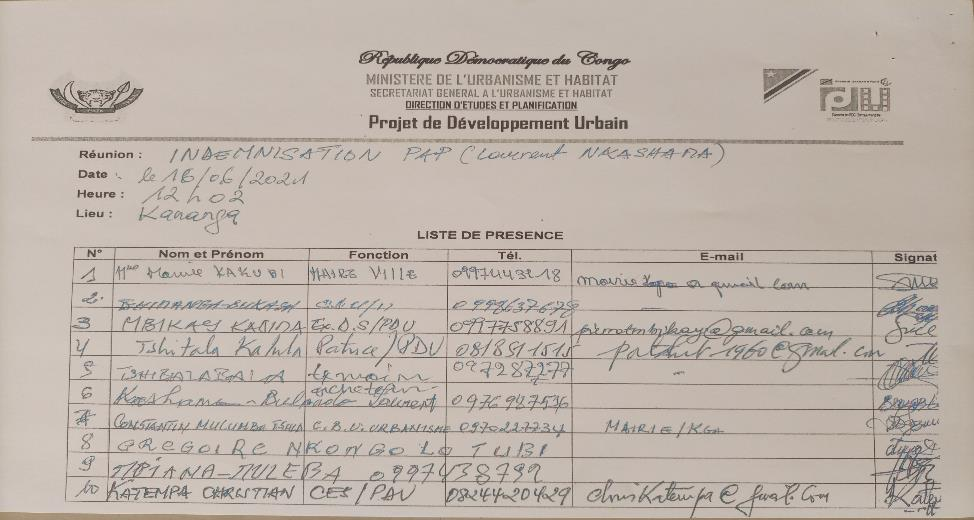 République Démocratique du Congo
MINISTERE DE L'URBANISME ET HABITAT
SECRETARIAT GENERAL A L'URBANISME ET HABITAT
DIRECTION D'ETUDES ET PLANIFICATION
Projet de Développement Urbain
Réunion : INDEMNISATION PAP (Laurent NKASHAMA)
Date : le 18/06/2021
Heure : 12h02
Lieu : Kananga
LISTE DE PRESENCE
N° Nom et Prénom Fonction Tél. E-mail Signat
1 Mme Marie KAKUBI MAIRE VILLE 0997443218 mairie @ gmail.com
2 0998637678 -
3 MBIKAY KABIDA Ex.D.S/PDU 0997758891 @gmail.com
4 Tshitala Kalula Patrice/PDU 0818911515 patshit1960@gmail.com
5 témoin 097287277 -
6 Kashama-Bulanda Laurent 0976947536
7 CONSTANTIN MULUMBA TSHIA C.B.U. URBANISME 0970227734 MAIRIE/KGA
8 GREGOIRE NKONGOLO TUBI
9 MBIANA-MULEBA 0997438799
10 KATEMPA CHRISTIAN CES/PAU 0824420429 chriskatempa@gmail.com